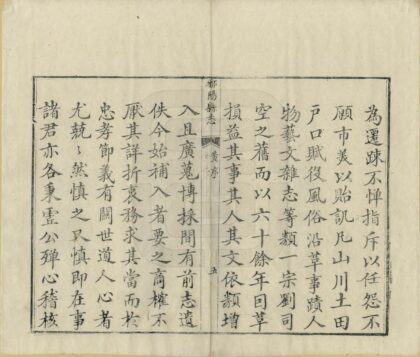 為遷疎不憚指斥以任怨不
願市美以貽譏凡山川土田
戸口賦役風俗沿革事蹟人
物藝文雜志等類一宗劉司
空之舊而以六十餘年因革
損益其事其人其文依類增
郃陽縣志
黃序
五
入且廣蒐博採間有前志遺
佚今始補入者要之商榷不
厭其詳折衷務求其當而於
忠孝節義有關世道人心者
尤兢兢然慎之又慎即在事
諸君亦各秉虛公殫心稽核